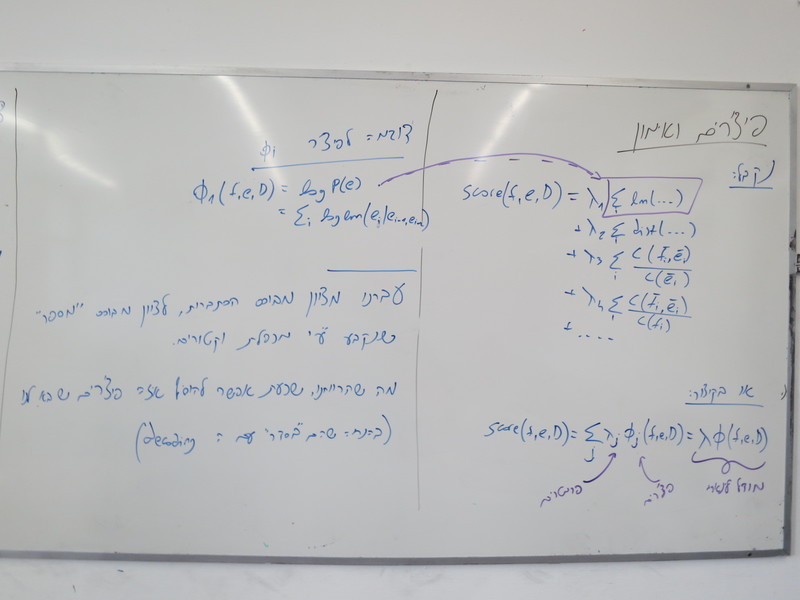 פיצ'רים ואימון
נקבל:
score(f,e,D) = λ₁ Σᵢ lm(...)
+ λ₂ Σᵢ dist(...)
+ λ₃ Σᵢ c(f̄ᵢ,ēᵢ) / c(ēᵢ)
+ λ₄ Σᵢ c(f̄ᵢ,ēᵢ) / c(f̄ᵢ)
+ ....
או בקיצור:
score(f,e,D) = Σⱼ λⱼ ϕⱼ(f,e,D) = λϕ(f,e,D)
פרמטרים פיצ'רים מודל לינארי
דוגמה לפיצ'ר ϕᵢ
ϕ₁(f,e,D) = log P(e)
= Σᵢ log lm(eᵢ|eᵢ₋₁,eᵢ₋₂)
עברנו מציון מבוסס הסתברות, לציון מבוסס "מספר"
שנקבע ע"י מכפלת וקטורים.
מה שהרווחנו, שכעת אפשר להוסיף איזה פיצ'רים שבא לנו
(בהנחה שהם "בסדר" עם ה decoding)